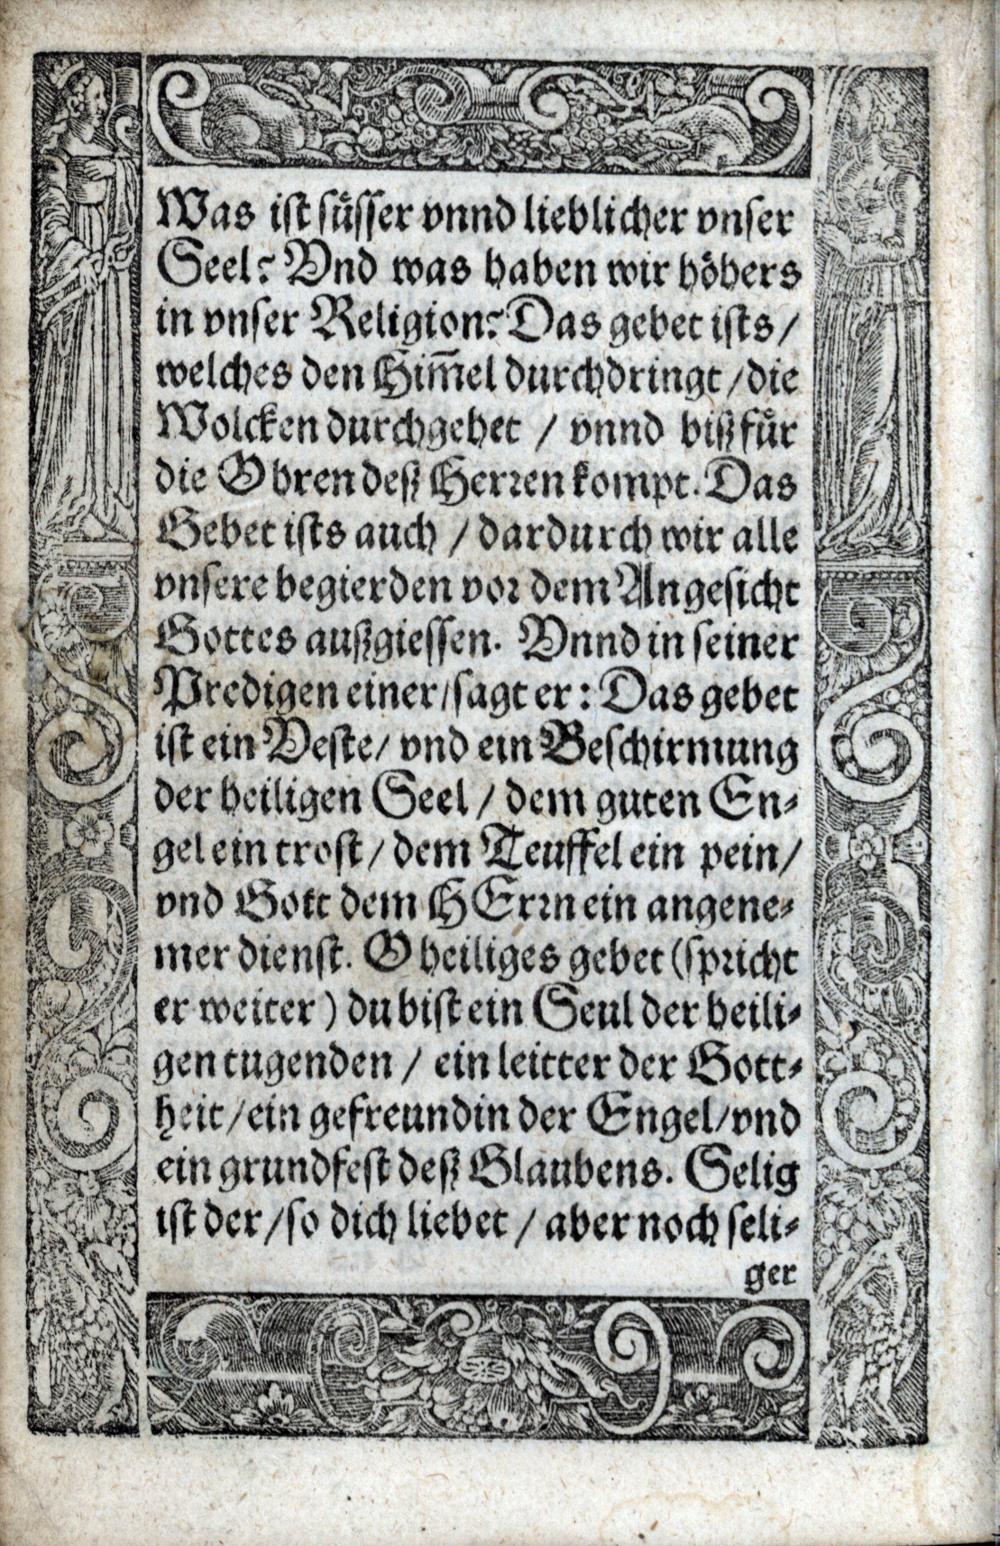 Was ist suͤsser vnnd lieblicher vnser
Seel? Vnd was haben wir hoͤhers
in vnser Religion? Das gebet ists /
welches den Him̃el durchdringt / die
Wolcken durchgehet / vnnd biß fuͤr
die Ohren deß Herren kompt. Das
Gebet ists auch / dardurch wir alle
vnsere begierden vor dem Angesicht
Gottes außgiessen. Vnnd in seiner
Predigen einer / sagt er : Das gebet
ist ein Veste / vnd ein Beschirmung
der heiligen Seel / dem guten En-
gel ein trost / dem Teuffel ein pein /
vnd Gott dem HErrn ein angene-
mer dienst. O heiliges gebet (spricht
er weiter) du bist ein Seul der heili-
gen tugenden / ein leitter der Gott-
heit / ein gefreundin der Engel / vnd
ein grundfest deß Glaubens. Selig
ist der / so dich liebet / aber noch seli-
ger